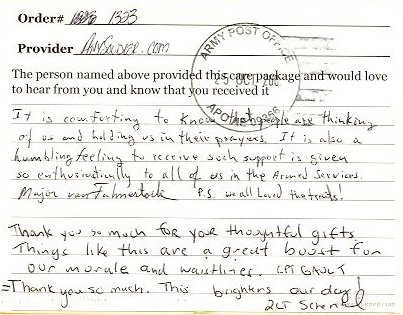 Order# 1523
Provider AnySoldier.com
ARMY POST OFFICE
The person named above provided this care package and would love
25 OCT
to hear from you and know that you received it
APO
It is comforting to know that people are thinking
of us and holding us in their prayers. It is also a
humbling feeling to receive such support is given
so enthusiastically to all of us in the Armed Services.
Major van P.S. we all loved the treats!
Thank you so much for your thoughtful gifts
Things like this are a great boost for
our morale and waistlines. CPT GAULT
Thank you so much. This brightens our day!
2LT